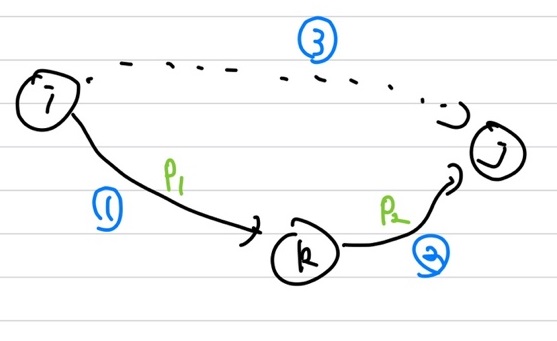 3
i
j
P1
1
P2
k
2